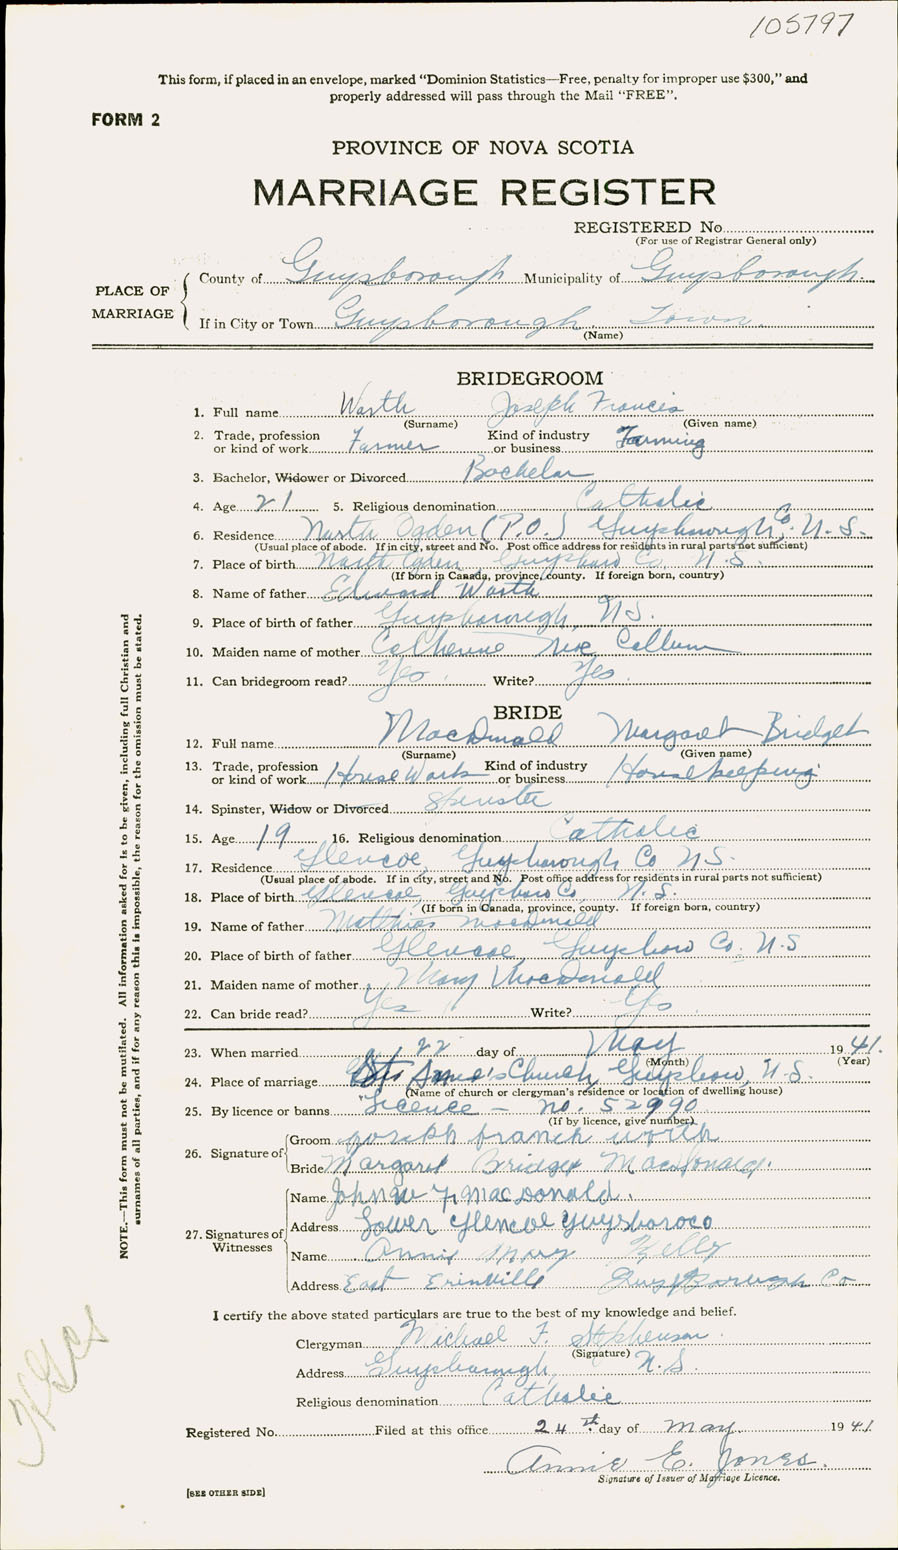 105797
This form, if placed in an envelope, marked “Dominion Statistics—Free, penalty for improper use $300,” and
properly addressed will pass through the Mail “FREE”.
FORM 2
PROVINCE OF NOVA SCOTIA
MARRIAGE REGISTER
REGISTERED No.
(For use of Registrar General only)
PLACE OF MARRIAGE
County of Guysborough Municipality of Guysborough
If in City or Town Guysborough Town
(Name)
BRIDEGROOM
1. Full name Worth Joseph Francis
(Surname) (Given name)
2. Trade, profession or kind of work Farmer Kind of industry or business Farming
3. Bachelor, Widower or Divorced Bachelor
4. Age 21 5. Religious denomination Catholic
6. Residence North Ogden (P.O.) Guysborough Co. N.S.
(Usual place of abode. If in city, street and No. Post office address for residents in rural parts not sufficient)
7. Place of birth North Ogden, Guysboro Co. N.S.
(If born in Canada, province, county. If foreign born, country)
8. Name of father Edward Worth
9. Place of birth of father Guysborough, N.S.
10. Maiden name of mother Catherine Callum
11. Can bridegroom read? Yes Write? Yes
BRIDE
12. Full name MacDonald Margaret Bridget
(Surname) (Given name)
13. Trade, profession or kind of work House Work Kind of industry or business Housekeeping
14. Spinster, Widow or Divorced Spinster
15. Age 19 16. Religious denomination Catholic
17. Residence Glencoe, Guysborough Co N.S.
(Usual place of abode. If in city, street and No. Post office address for residents in rural parts not sufficient)
18. Place of birth Glencoe, Guysboro Co. N.S.
(If born in Canada, province, county. If foreign born, country)
19. Name of father Matthias MacDonald
20. Place of birth of father Glencoe, Guysboro Co. N.S
21. Maiden name of mother Mary MacDonald
22. Can bride read? Yes Write? Yes
23. When married 22 day of May 1941.
(Month) (Year)
24. Place of marriage Ann's Church, Guysboro, N.S.
(Name of church or clergyman's residence or location of dwelling house)
25. By licence or banns Licence — no. 52990
(If by licence, give number)
26. Signature of
Groom joseph francis worth
Bride Margaret Bridget MacDonald.
27. Signatures of Witnesses
Name MacDonald.
Address Lower Glencoe Guysboroco
Name Annie Mary Kelly
Address East Erinville Guysborough Co
I certify the above stated particulars are true to the best of my knowledge and belief.
Clergyman Michael F. Stephenson
(Signature)
Address Guysborough, N.S.
Religious denomination Catholic
Registered No. Filed at this office 24th day of May 1941
Annie E. Jones.
Signature of Issuer of Marriage Licence.
[SEE OTHER SIDE]
NOTE.—This form must not be mutilated. All information asked for is to be given, including full Christian and
surnames of all parties, and if for any reason this is impossible, the reason for the omission must be stated.